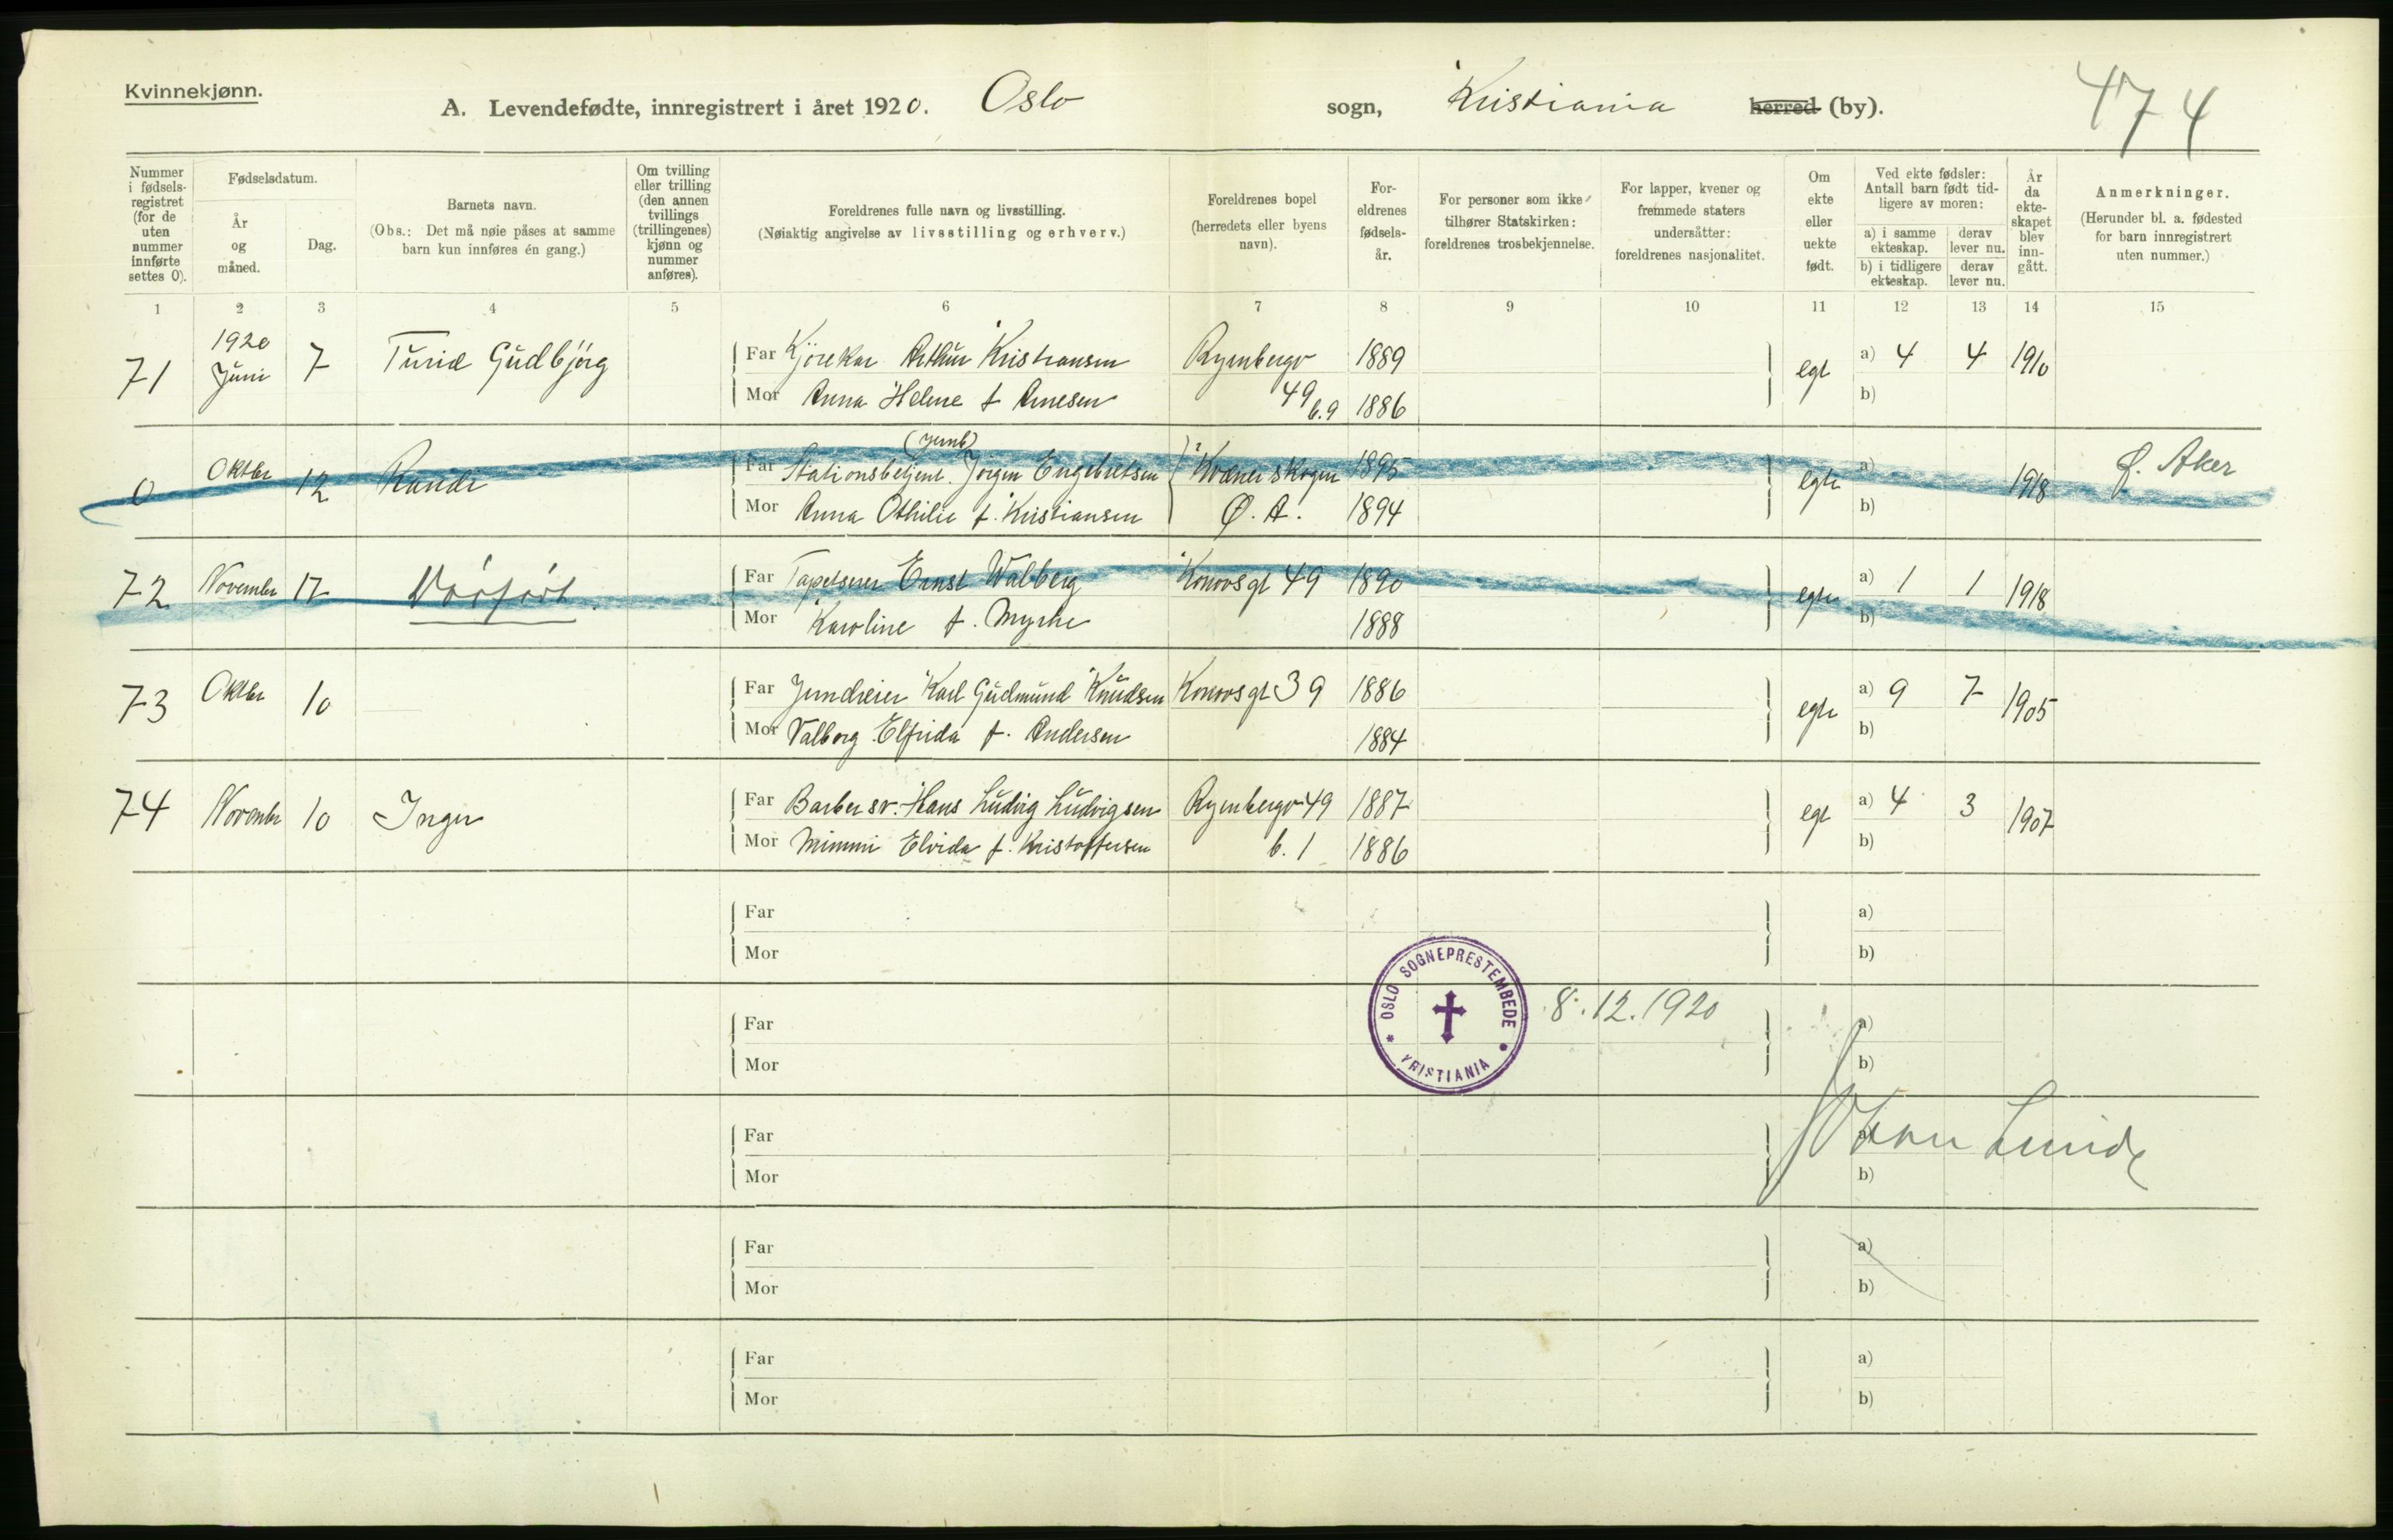 Kvinnekjønn.
A. Levendefødte, innregistrert i året 1920. Oslo sogn, Kristiania herred (by).
474
Nummer i fødsels-registret (for de uten nummer innførte settes 0).
Fødselsdatum.
År og måned.
Dag.
Barnets navn.
(Obs.: Det må nøie påses at samme barn kun innføres én gang.)
Om tvilling eller trilling (den annen tvillings (trillingenes) kjønn og nummer anføres).
Foreldrenes fulle navn og livsstilling.
(Nøiaktig angivelse av livsstilling og erhverv.)
Foreldrenes bopel
(herredets eller byens navn).
For-eldrenes fødsels-år.
For personer som ikke tilhører Statskirken: foreldrenes trosbekjennelse.
For lapper, kvener og fremmede staters undersåtter: foreldrenes nasjonalitet.
Om ekte eller uekte født.
Ved ekte fødsler: Antall barn født tid-ligere av moren:
a) i samme ekteskap.
derav lever nu.
b) i tidligere ekteskap.
derav lever nu.
År da ekte-skapet blev inn-gått.
Anmerkninger.
(Herunder bl. a. fødested for barn innregistrert uten nummer.)
1 2 3 4 5 6 7 8 9 10 11 12 13 14 15
71 1920 Juni 7 Turid Gudbjørg Far Kjørekar Arthur Kristiansen Ryenbergv 1889 egt a) 4 4 1910
Mor Anna Helene f Arnesen 49 b.9 1886 b)
(Jernb)
0 Oktbr 12 Randi Far Stationsbetjent. Jörgen Engebretsen Kværnerskogen 1895 egte a) 1918 Ø. Aker
Mor Anna Othilie f. Kristiansen Ø. A. 1894 b)
72 November 17 Far Tapetserer Ernst Walberg Konowsgt 49 1890 egte a) 1 1 1918
Mor Karoline f. Myrhe 1888 b)
73 Oktbr 10 Far Jerndreier Karl Gudmund Knudsen Konowsgt 39 1886 egte a) 9 7 1905
Mor Valborg Elfrida f. Andersen 1884 b)
74 November 10 Inger Far Barber sv. Hans Ludvig Ludvigsen Ryenbergv 49 1887 egt a) 4 3 1907
Mor Mimmi Elvida f. Kristoffersen b. 1 1886 b)
Far a)
Mor b)
OSLO SOGNEPRESTEMBEDE
KRISTIANIA
8.12.1920
Far a)
Mor b)
Johan Lunde
Far a)
Mor b)
Far a)
Mor b)
Far a)
Mor b)